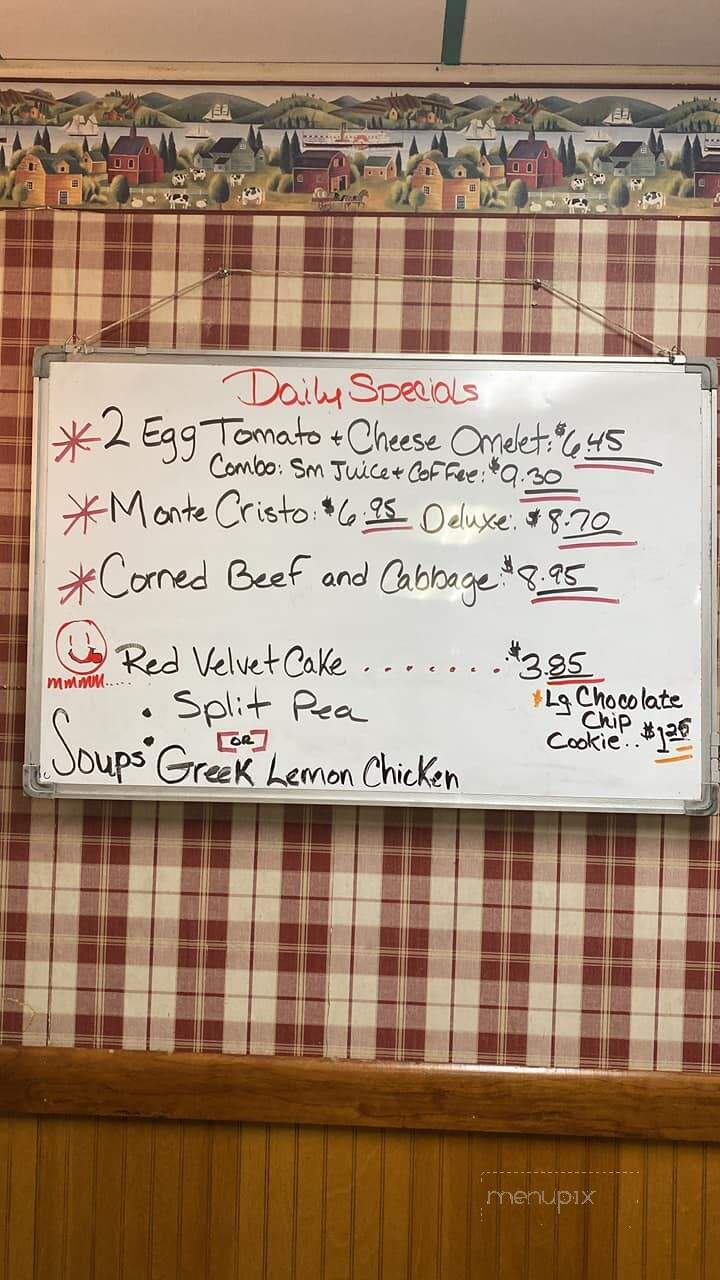 Daily Specials
* 2 Egg Tomato + Cheese Omelet: $6.45
Combo: Sm Juice + Coffee: $9.30
* Monte Cristo: $6.95 Deluxe: $8.70
* Corned Beef and Cabbage: $8.95
mmmm.....
Red Velvet Cake ........ $3.85
• Split Pea
[OR]
Soups • Greek Lemon Chicken
* Lg Chocolate
Chip
Cookie.. $1.25
menupix